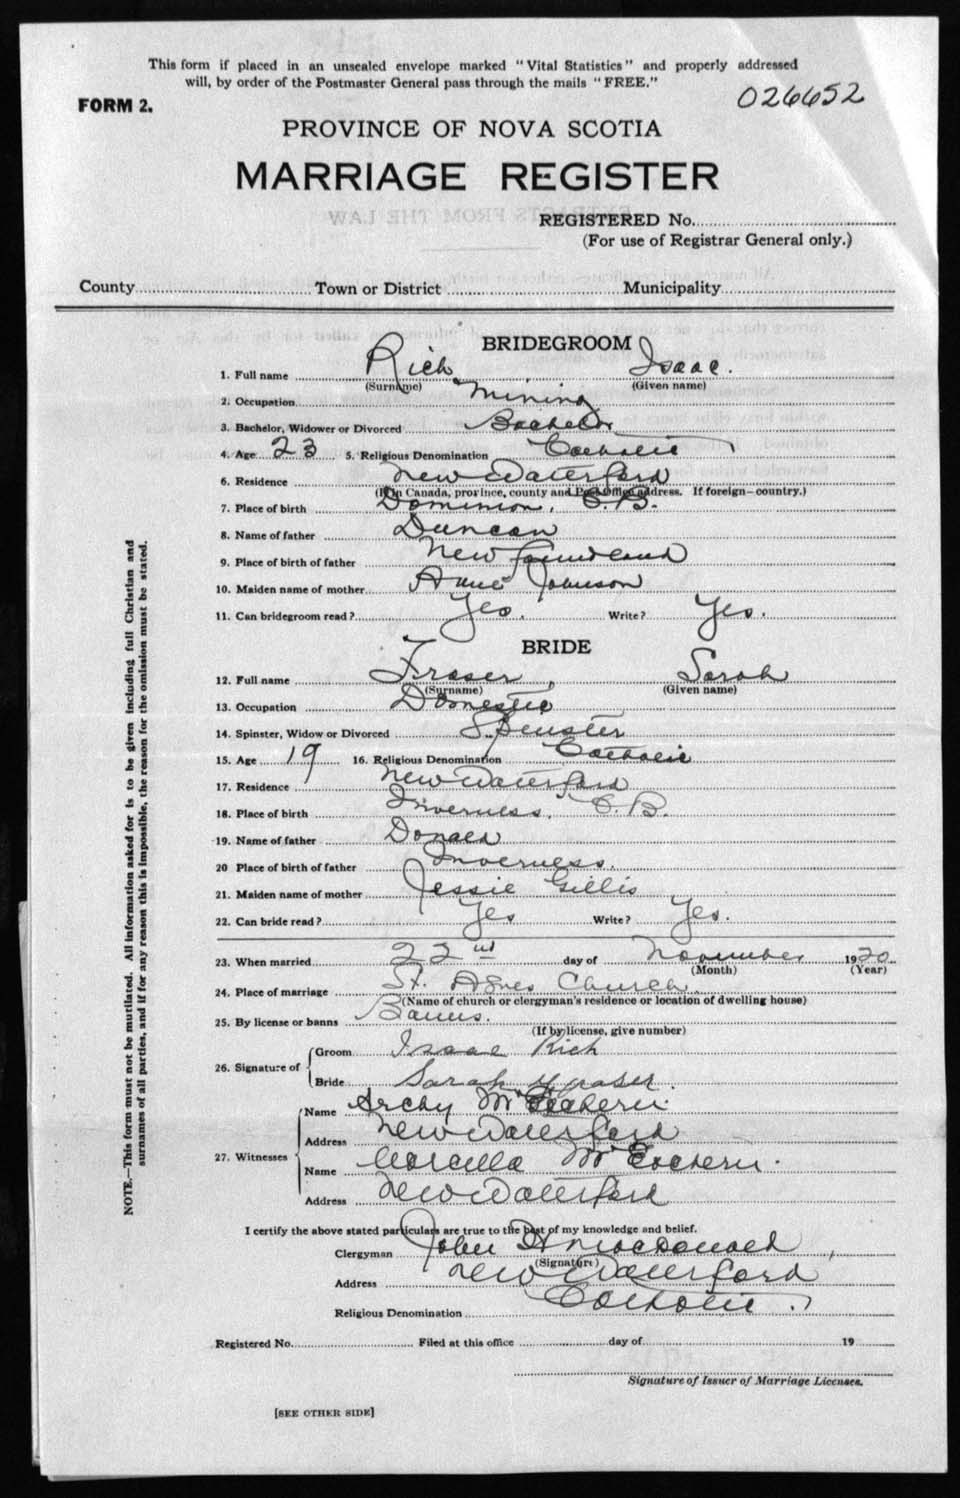 This form if placed in an unsealed envelope marked "Vital Statistics" and properly addressed
will, by order of the Postmaster General pass through the mails "FREE."
FORM 2.
026652
PROVINCE OF NOVA SCOTIA
MARRIAGE REGISTER
EXTRACTS FROM THE LAW
REGISTERED No.
(For use of Registrar General only.)
County Town or District Municipality
BRIDEGROOM
1. Full name Rich Isaac.
(Surname) (Given name)
2. Occupation Mining
3. Bachelor, Widower or Divorced Bachelor
4. Age 23 5. Religious Denomination Catholic
6. Residence New Waterford
(If in Canada, province, county and Post Office address. If foreign—country.)
7. Place of birth Dominion, C.B.
8. Name of father Duncan
9. Place of birth of father New Foundland
10. Maiden name of mother Annie Johnson
11. Can bridegroom read? Yes. Write? Yes.
BRIDE
12. Full name Fraser, Sarah
(Surname) (Given name)
13. Occupation Domestic
14. Spinster, Widow or Divorced Spinster
15. Age 19 16. Religious Denomination Catholic
17. Residence New Waterford
18. Place of birth Inverness, C.B.
19. Name of father Donald
20 Place of birth of father Inverness.
21. Maiden name of mother Jessie Gillis
22. Can bride read? Yes Write? Yes.
23. When married 22nd day of November 1920
(Month) (Year)
24. Place of marriage St. Agnes Church.
(Name of church or clergyman's residence or location of dwelling house)
25. By license or banns Banns.
(If by license, give number)
26. Signature of Groom Isaac Rich
Bride Sarah Fraser.
27. Witnesses Name Archy McEachern
Address New Waterford
Name Marcella McEachern.
Address New Waterford
I certify the above stated particulars are true to the best of my knowledge and belief.
Clergyman John H Macdonald,
(Signature)
Address New Waterford
Religious Denomination Catholic.
Registered No. Filed at this office day of 19
Signature of Issuer of Marriage Licenses.
[SEE OTHER SIDE]
NOTE.—This form must not be mutilated. All information asked for is to be given including full Christian and
surnames of all parties, and if for any reason this is impossible, the reason for the omission must be stated.